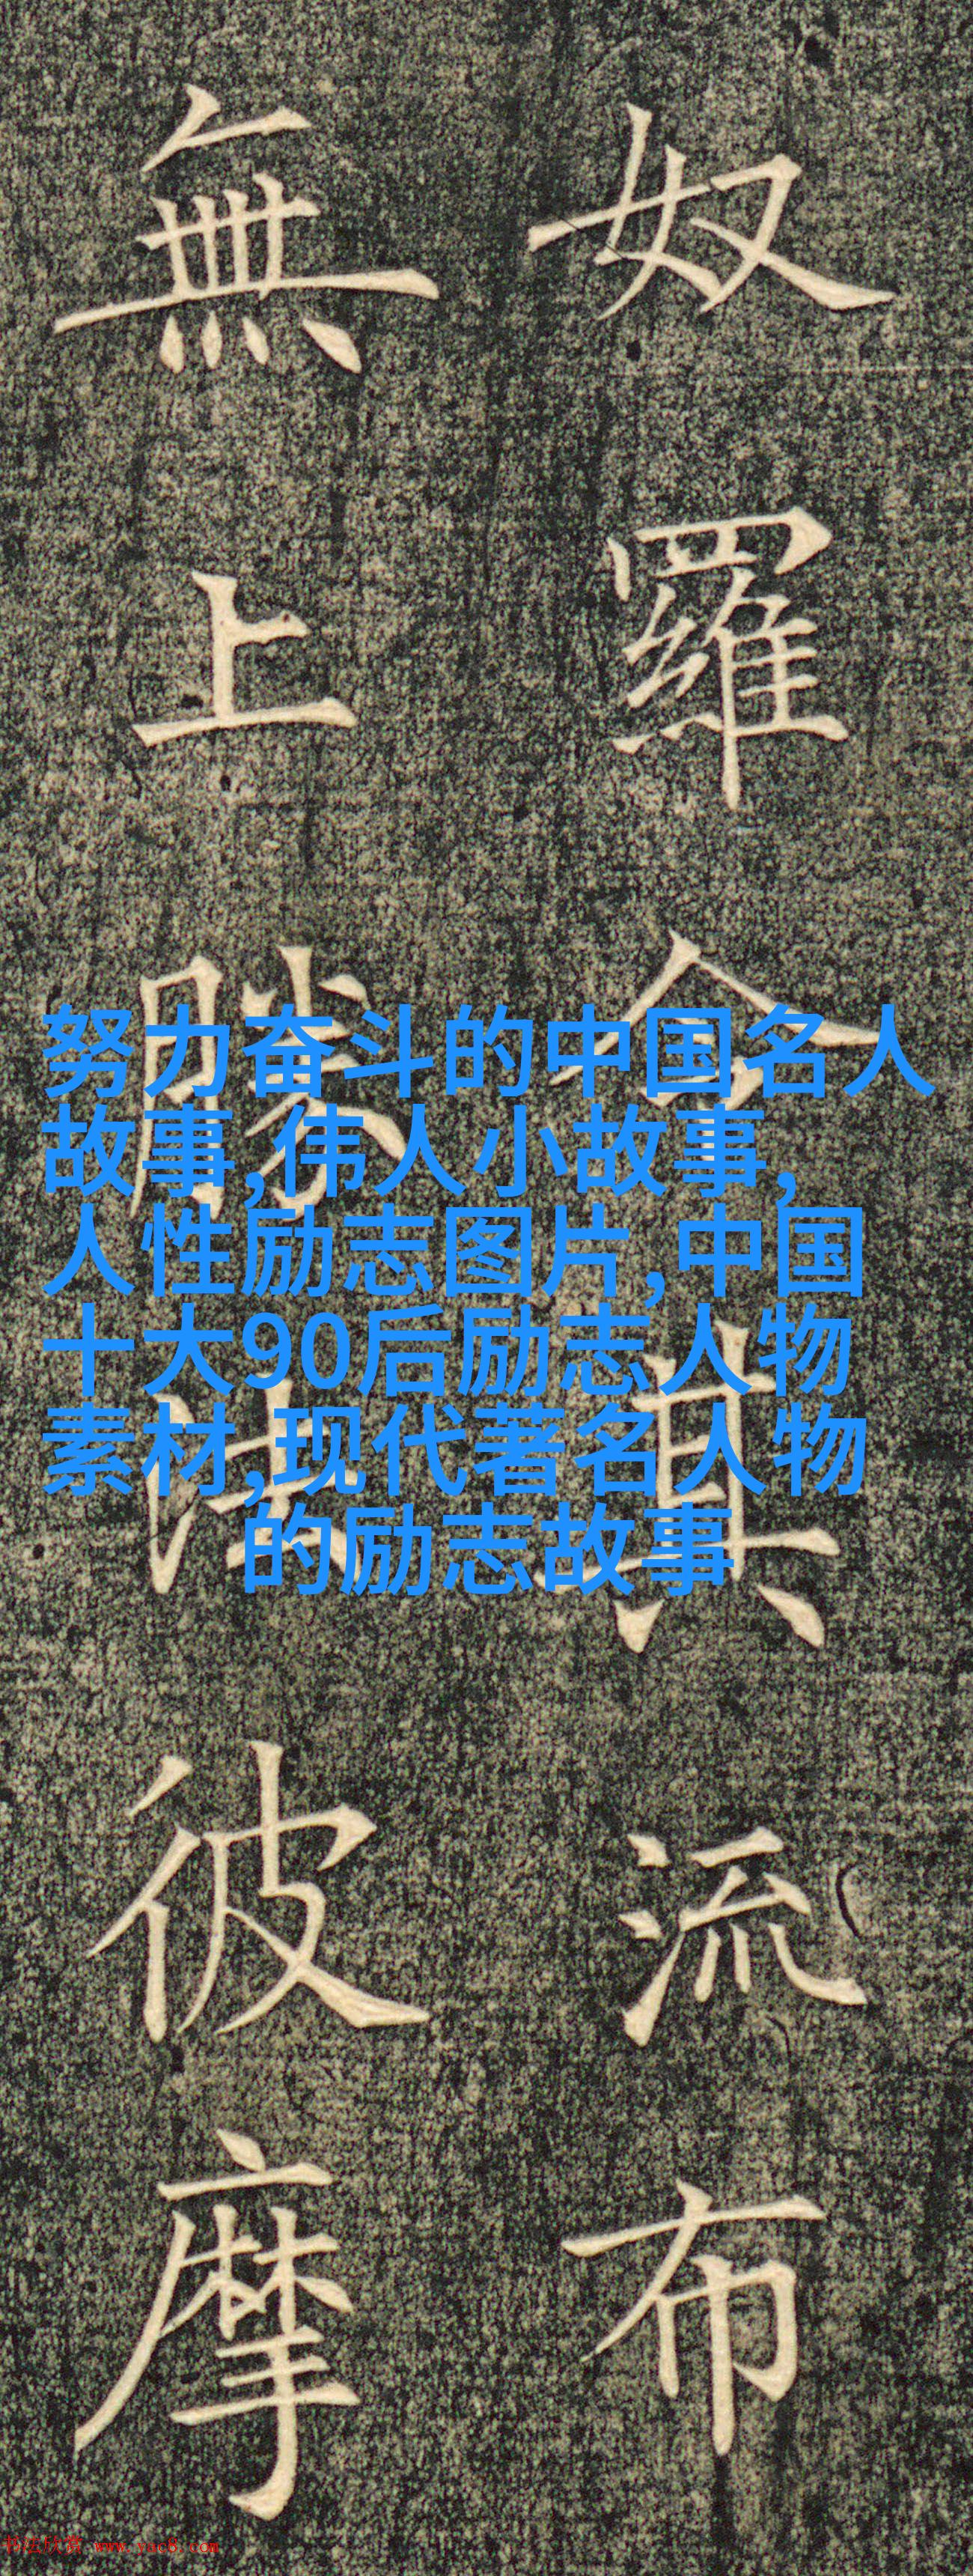 奴羅令其流布
無上勝法彼摩
努力奋斗的中国名人
故事,伟人小故事,
人性励志图片,中国
十大90后励志人物
素材,现代著名人物
的励志故事
书法欣赏 www.yac8.com